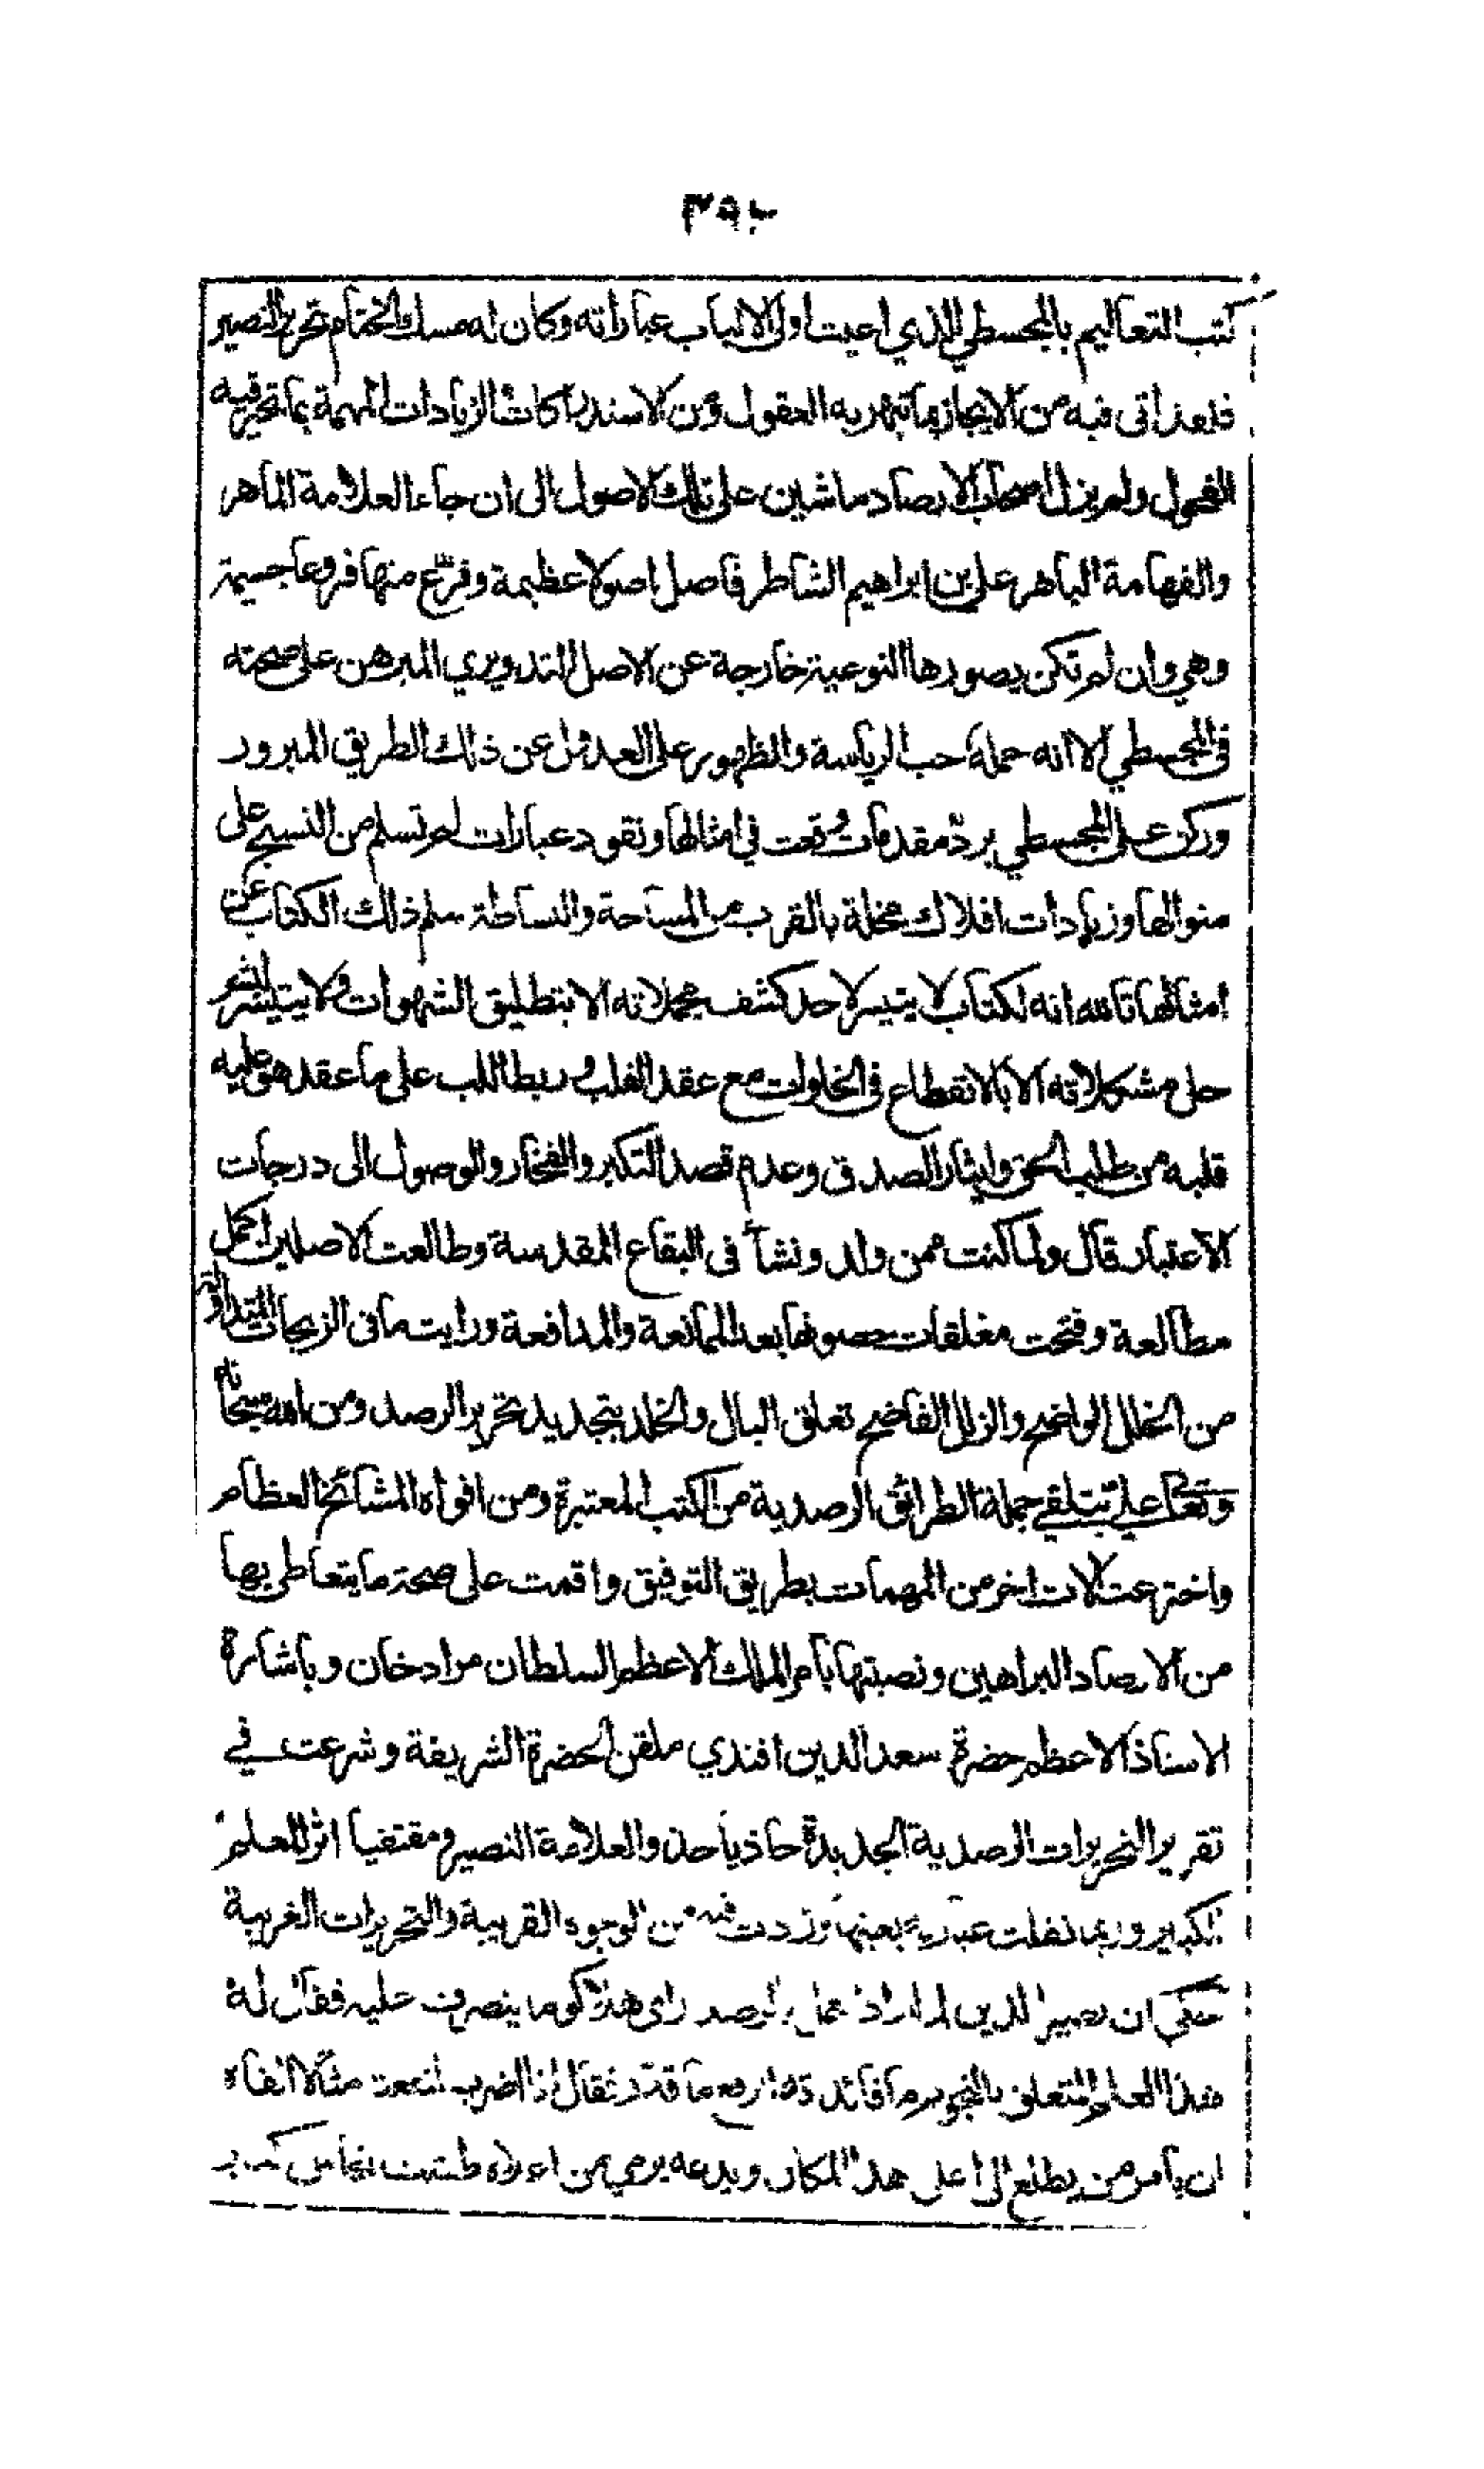 ٣٩٠
كتب التعاليم بالمجسطي الذي اعيت اولي الالباب عباراته وكان له مسك الختام تحرير النصير
فلقد اتى فيه من الايجاز ما تبهر به العقول ومن الاستدراكات والزيادات المهمة بما تحير فيه
الفحول ولم يزل اصحاب الارصاد ماشين على تلك الاصول الى ان جاء العلامة الماهر
والفهامة الباهر علي بن ابراهيم الشاطر فاصل اصولا عظيمة وفرّع منها فروعا جسيمة
وهي وان لم تكن بصورها النوعية خارجة عن الاصل التدويري المبرهن على صحته
فى المجسطي الا انه حمله حب الرياسة والظهور على العدول عن ذلك الطريق المبرور
وركن على المجسطي بردّ مقدمات وقعت في امثالها ونقود عبارات لم تسلم من النسيج على
منوالها وزيادات افلاك مخلة بالقرب من المساحة والبساطة سلم ذلك الكتاب عن
امثالها تالله انه لكتاب لا يتيسر لاحد كشف مجملاته الا بتطليق الشهوات ولا يتيسر لبشر
حل مشكلاته الا بالانقطاع فى الخلوات مع عقد القلب وربط اللب على ما عقد هو عليه
قلبه من طلب الحق وايثار الصدق وعدم قصد التكبر والفخار والوصول الى درجات
الاعتبار قال ولما كنت ممن ولد ونشأ فى البقاع المقدسة وطالعت الاصلين اكمل
مطالعة وفتحت مغلقات حصونها بعد الممانعة والمدافعة ورايت ما فى الزيجات المتداولة
من الخلل الواضح والزلل الفاضح تعلق البال والخلد بتجديد تحرير الرصد ومن الله سبحانه
وتعالى علي بتلقي جملة الطرائق الرصدية من الكتب المعتبرة ومن افواه المشائخ العظام
واخترعت الات اخر من المهمات بطريق التوفيق واقمت على صحة ما يتعاطى بها
من الارصاد البراهين ونصبتها بامر الملك الاعظم السلطان مراد خان وباشارة
الاستاذ الاعظم حضرة سعد الدين افندي ملقن الحضرة الشريفة وشرعت في
تقرير التحريرات الرصدية الجديدة حاذيا حذو العلامة النصير ومقتفيا اثر المعلم
الكبير وربما نقلت عبارته بعينها وزدت فيه من الوجوه القريبة والتحريرات الغريبة
حكى ان نصير الدين لما اراد عمل الرصد راى هلاكو ما ينصرف عليه فقال له
هذا العلم المتعلق بالنجوم ما فائدته ارفع ما قدّر فقال انا اضرب لمنفعته مثالا القاه
ان يامر من يطلع الى اعلى هذا المكان ويدعه يرمي من اعلاه طست نحاس كبير